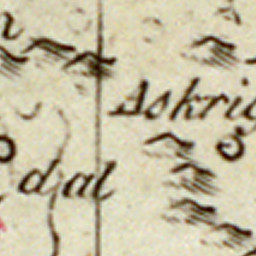 n
Askrig
dal